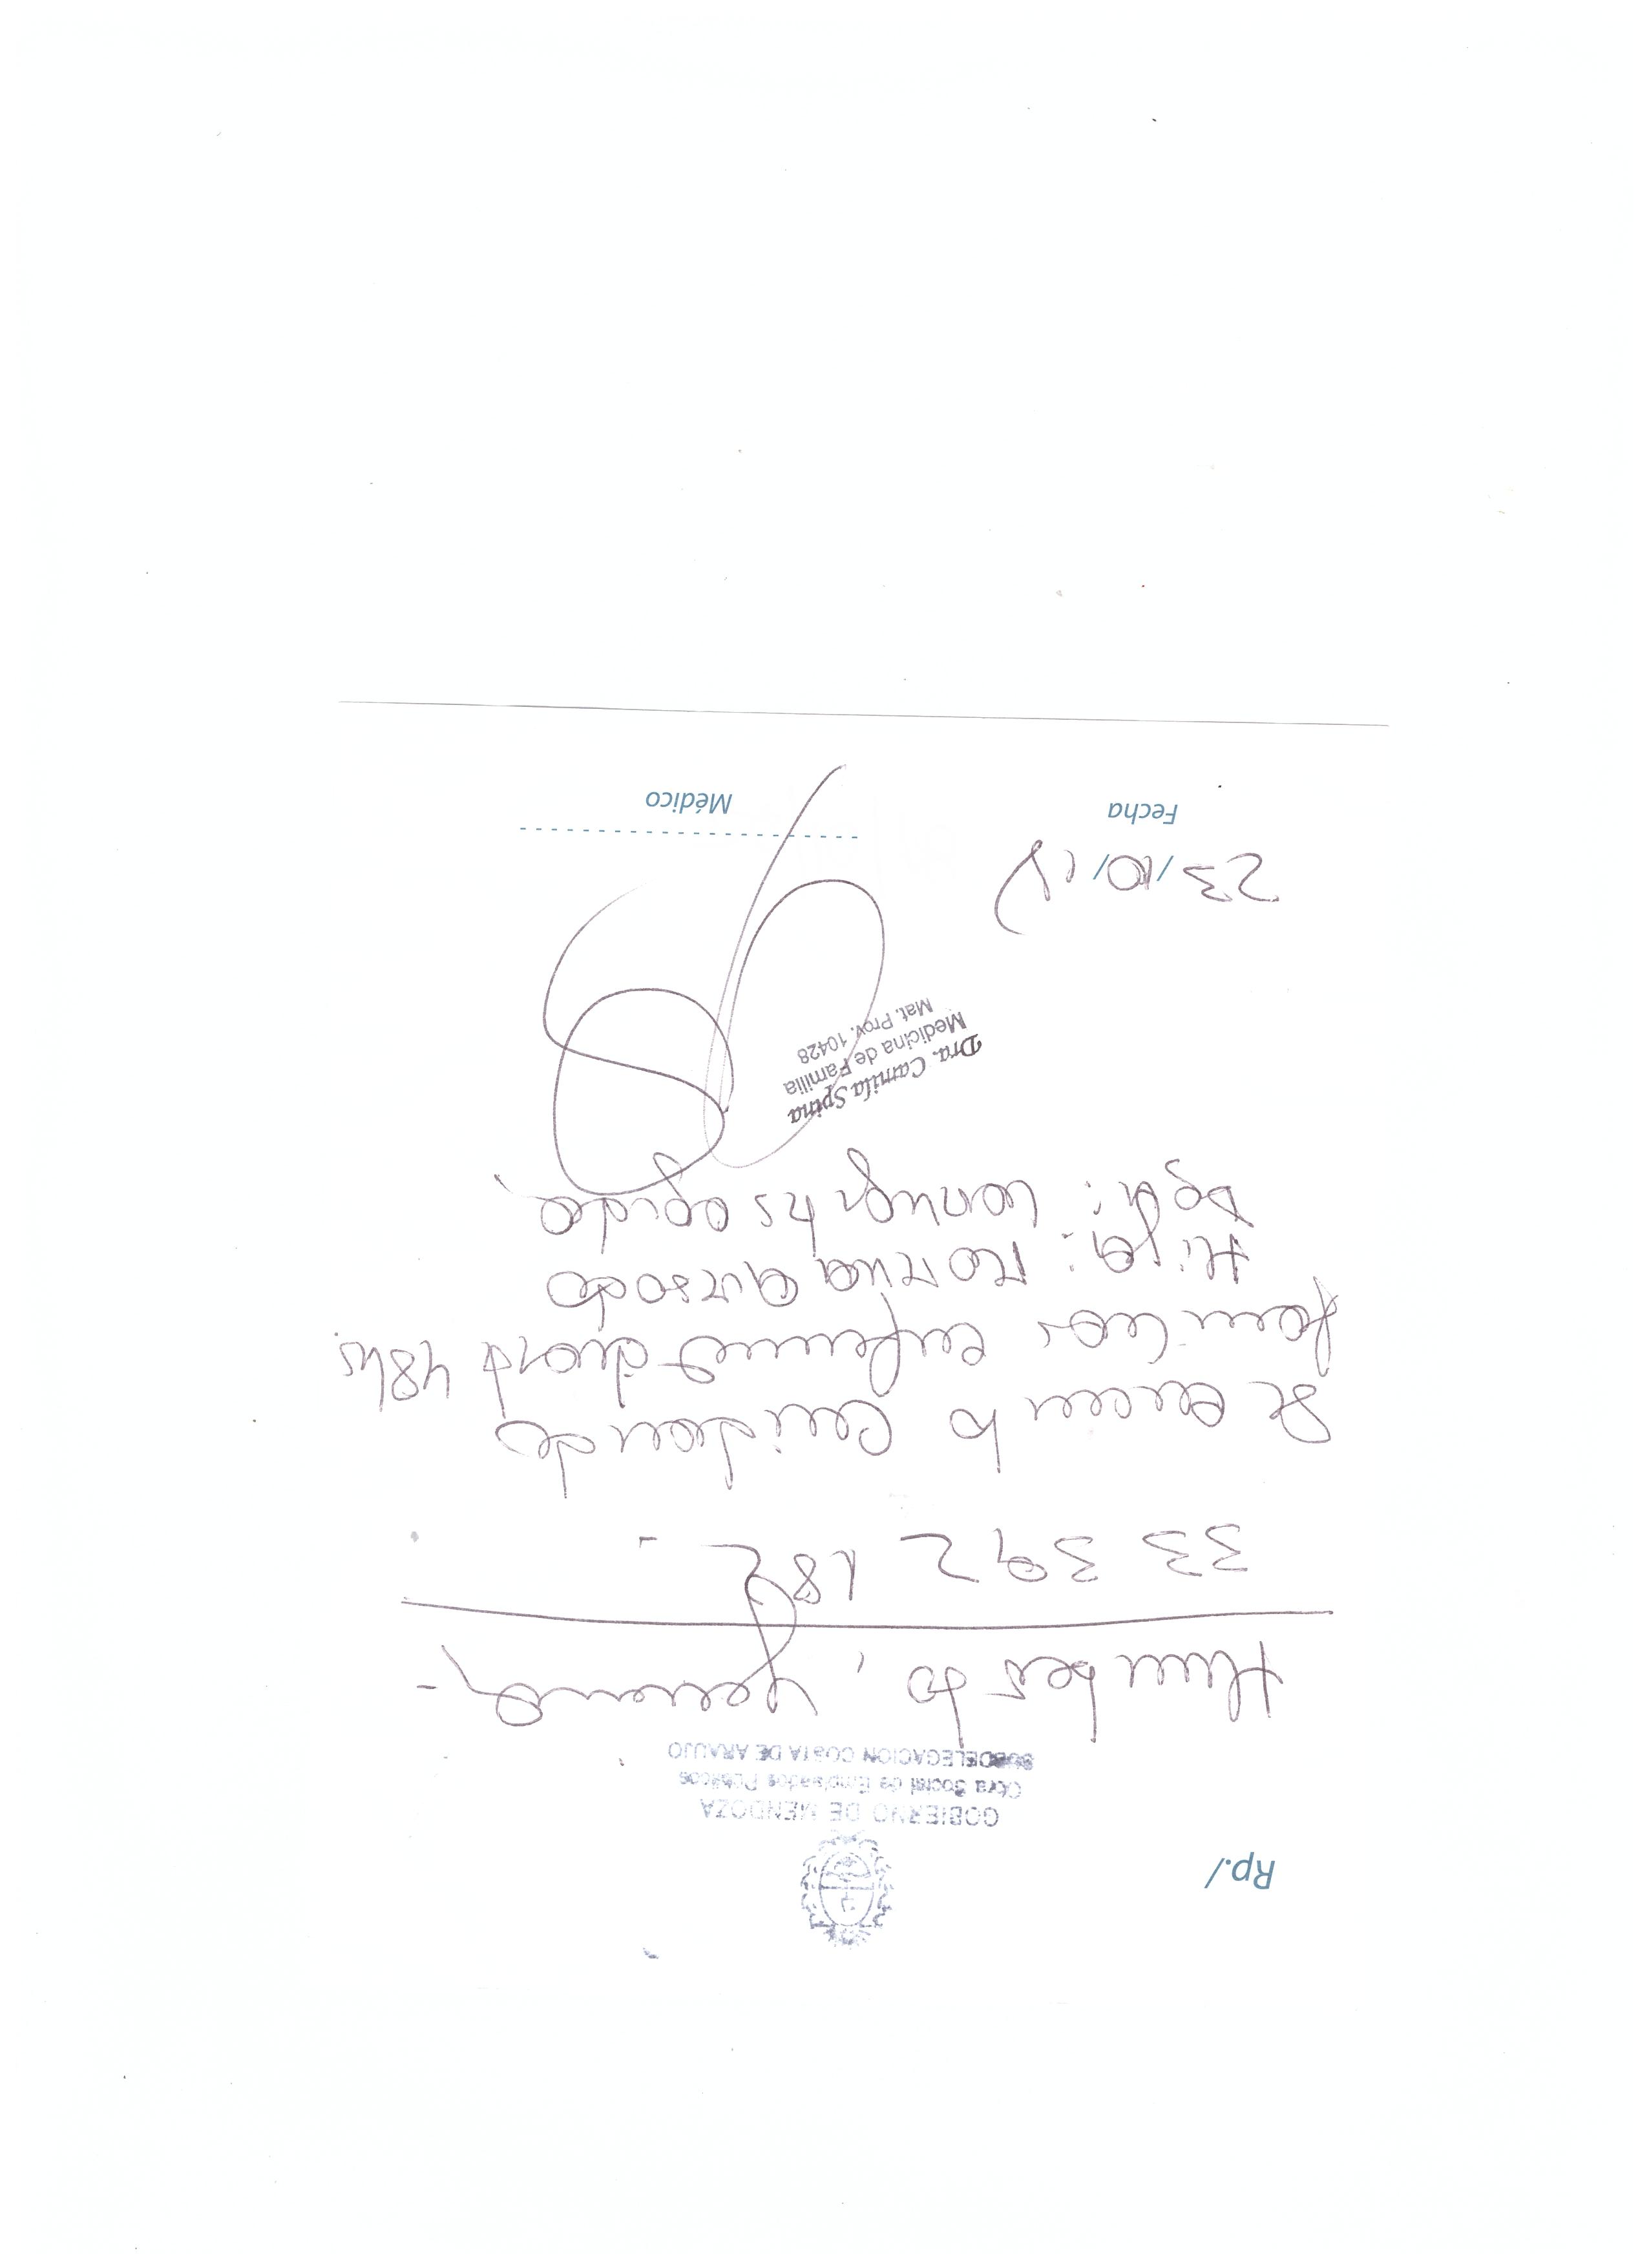 Rp./
GOBIERNO DE MENDOZA
Obra Social de Empleados Públicos
SUBDELEGACION COSTA DE ARAUJO
Humberto,
33 392 182 -
Se encuentra cuidando
familiar enfermo durante 48hs.
Hija:
Dg:
Dra. Camila Spina
Medicina de Familia
Mat. Prov. 10428
23/10/
Fecha
Médico